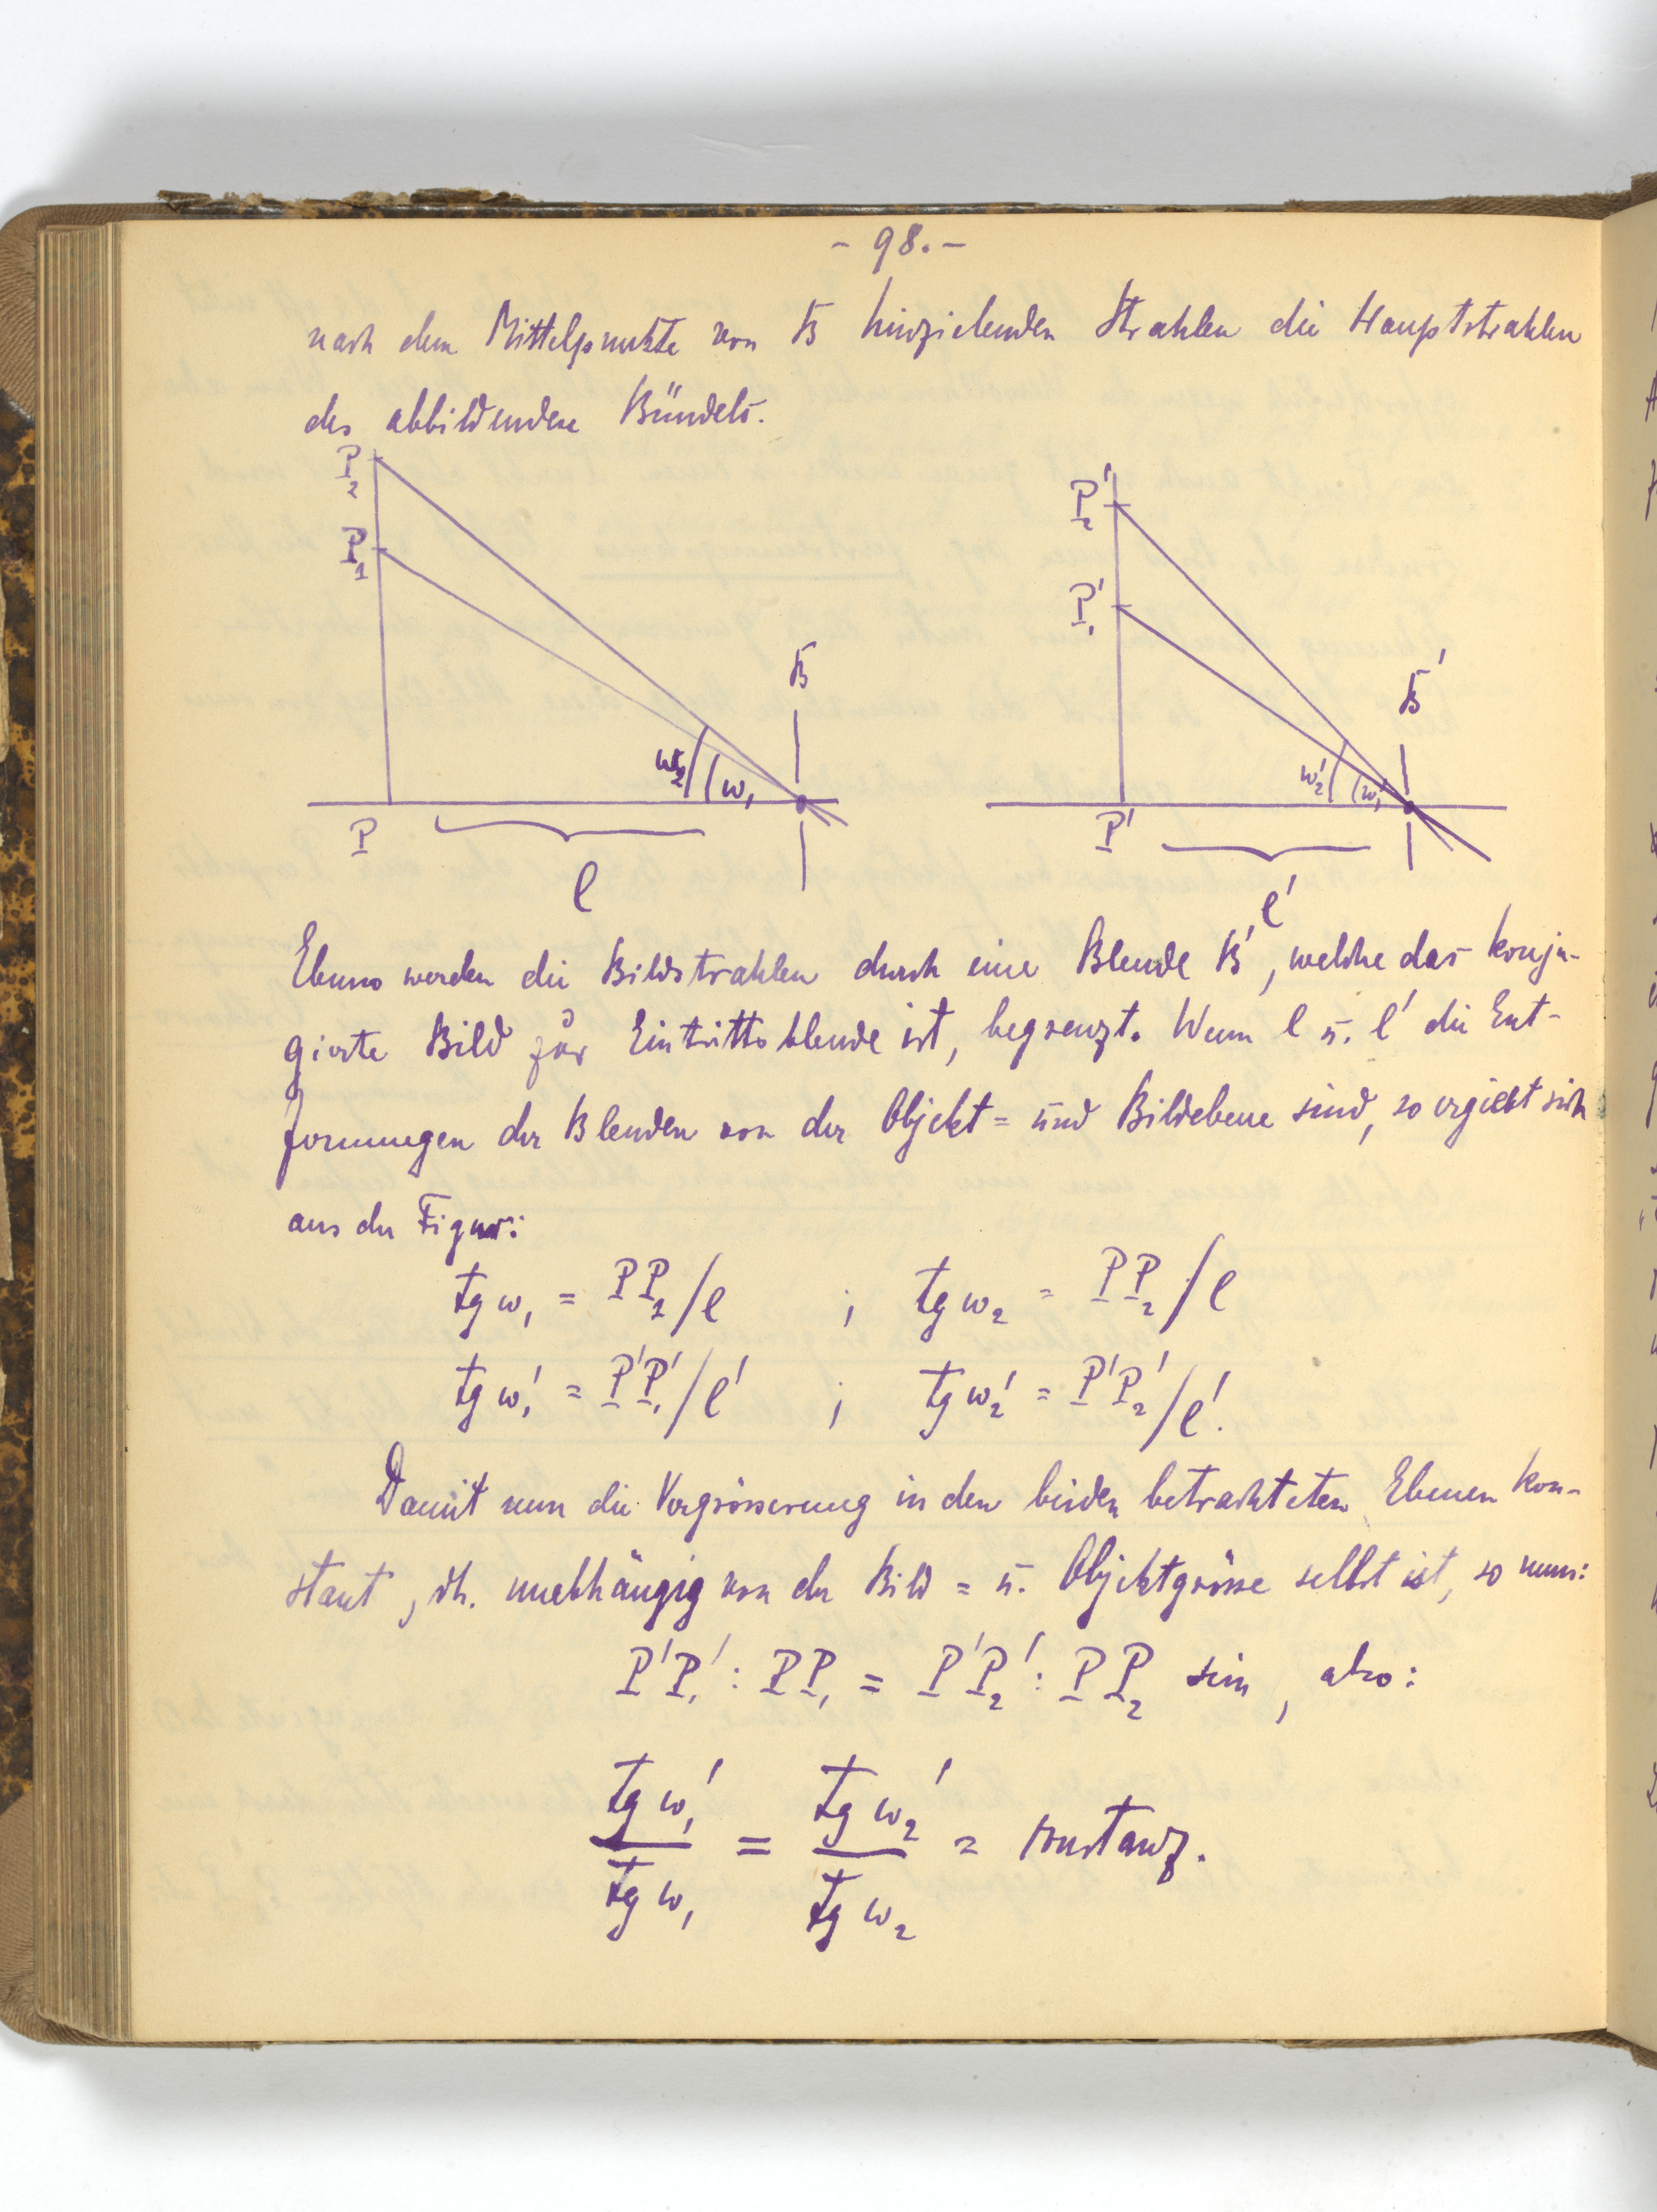 - 98. -
nach dem Mittelpunkte von B hinzielenden Strahlen die Hauptstrahlen
des abbildenden Bündels.
P₂
P₁
B
w₂
w₁
P
l
P₂'
P₁'
B'
w₂'
w₁'
P'
l'
Ebenso werden die Bildstrahlen durch eine Blende B', welche das konju-
gierte Bild zur Eintrittsblende ist, begrenzt. Wenn l u. l' die Ent-
fernungen der Blenden von der Objekt= und Bildebene sind, so ergiebt sich
aus der Figur:
tg w₁ = PP₁/l ; tg w₂ = PP₂/l
tg w₁' = P'P₁'/l' ; tg w₂' = P'P₂'/l'.
Damit nun die Vergrösserung in den beiden betrachteten Ebenen kon-
stant, dh. unabhängig von der Bild= u. Objektgrösse selbst ist, so muss:
P'P₁' : PP₁ = P'P₂' : PP₂ sein, also:
tg w₁' / tg w₁ = tg w₂' / tg w₂ = konstanz.